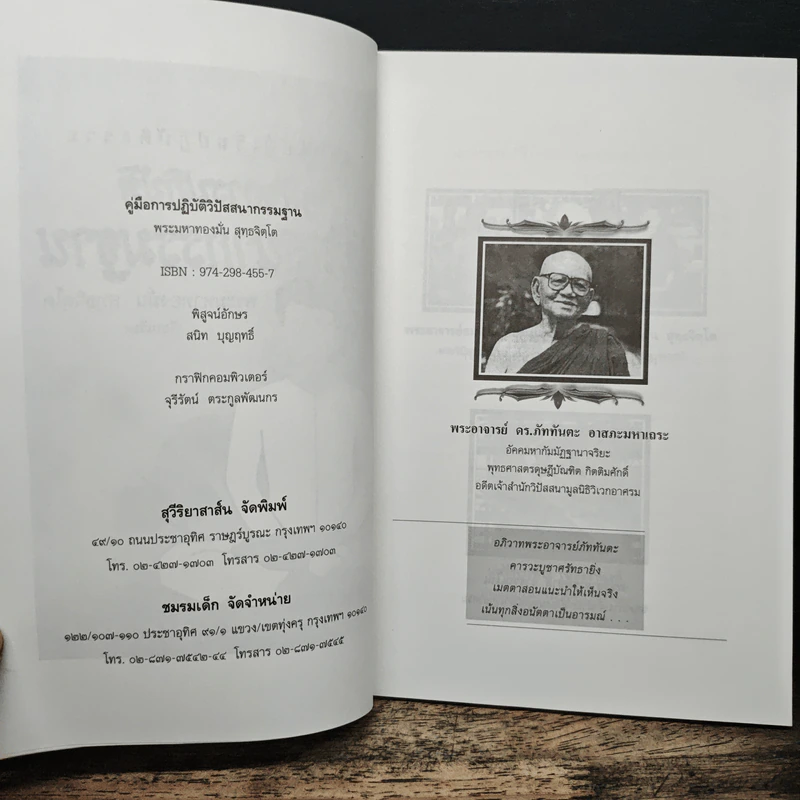 คู่มือการปฏิบัติวิปัสสนากรรมฐาน
พระมหาทองมั่น สุทฺธจิตฺโต
ISBN : 974-298-455-7
พิสูจน์อักษร
สนิท บุญฤทธิ์
กราฟิกคอมพิวเตอร์
จุรีรัตน์ ตระกูลพัฒนกร
สุวีริยาสาส์น จัดพิมพ์
๔๙/๑๐ ถนนประชาอุทิศ ราษฎร์บูรณะ กรุงเทพฯ ๑๐๑๔๐
โทร. ๐๒-๔๒๗-๑๗๐๓ โทรสาร ๐๒-๔๒๗-๑๗๐๓
ชมรมเด็ก จัดจำหน่าย
๑๒๒/๑๐๗-๑๑๐ ประชาอุทิศ ๙๑/๑ แขวง/เขตทุ่งครุ กรุงเทพฯ ๑๐๑๔๐
โทร. ๐๒-๘๗๑-๗๕๔๒-๔๔ โทรสาร ๐๒-๘๗๑-๗๕๔๕
พระอาจารย์ ดร.ภัททันตะ อาสภะมหาเถระ
อัคคมหากัมมัฏฐานาจริยะ
พุทธศาสตรดุษฎีบัณฑิต กิตติมศักดิ์
อดีตเจ้าสำนักวิปัสสนามูลนิธิวิเวกอาศรม
อภิวาทพระอาจารย์ภัททันตะ
คารวะบูชาศรัทธายิ่ง
เมตตาสอนแนะนำให้เห็นจริง
เน้นทุกสิ่งอนัตตาเป็นอารมณ์ . . .